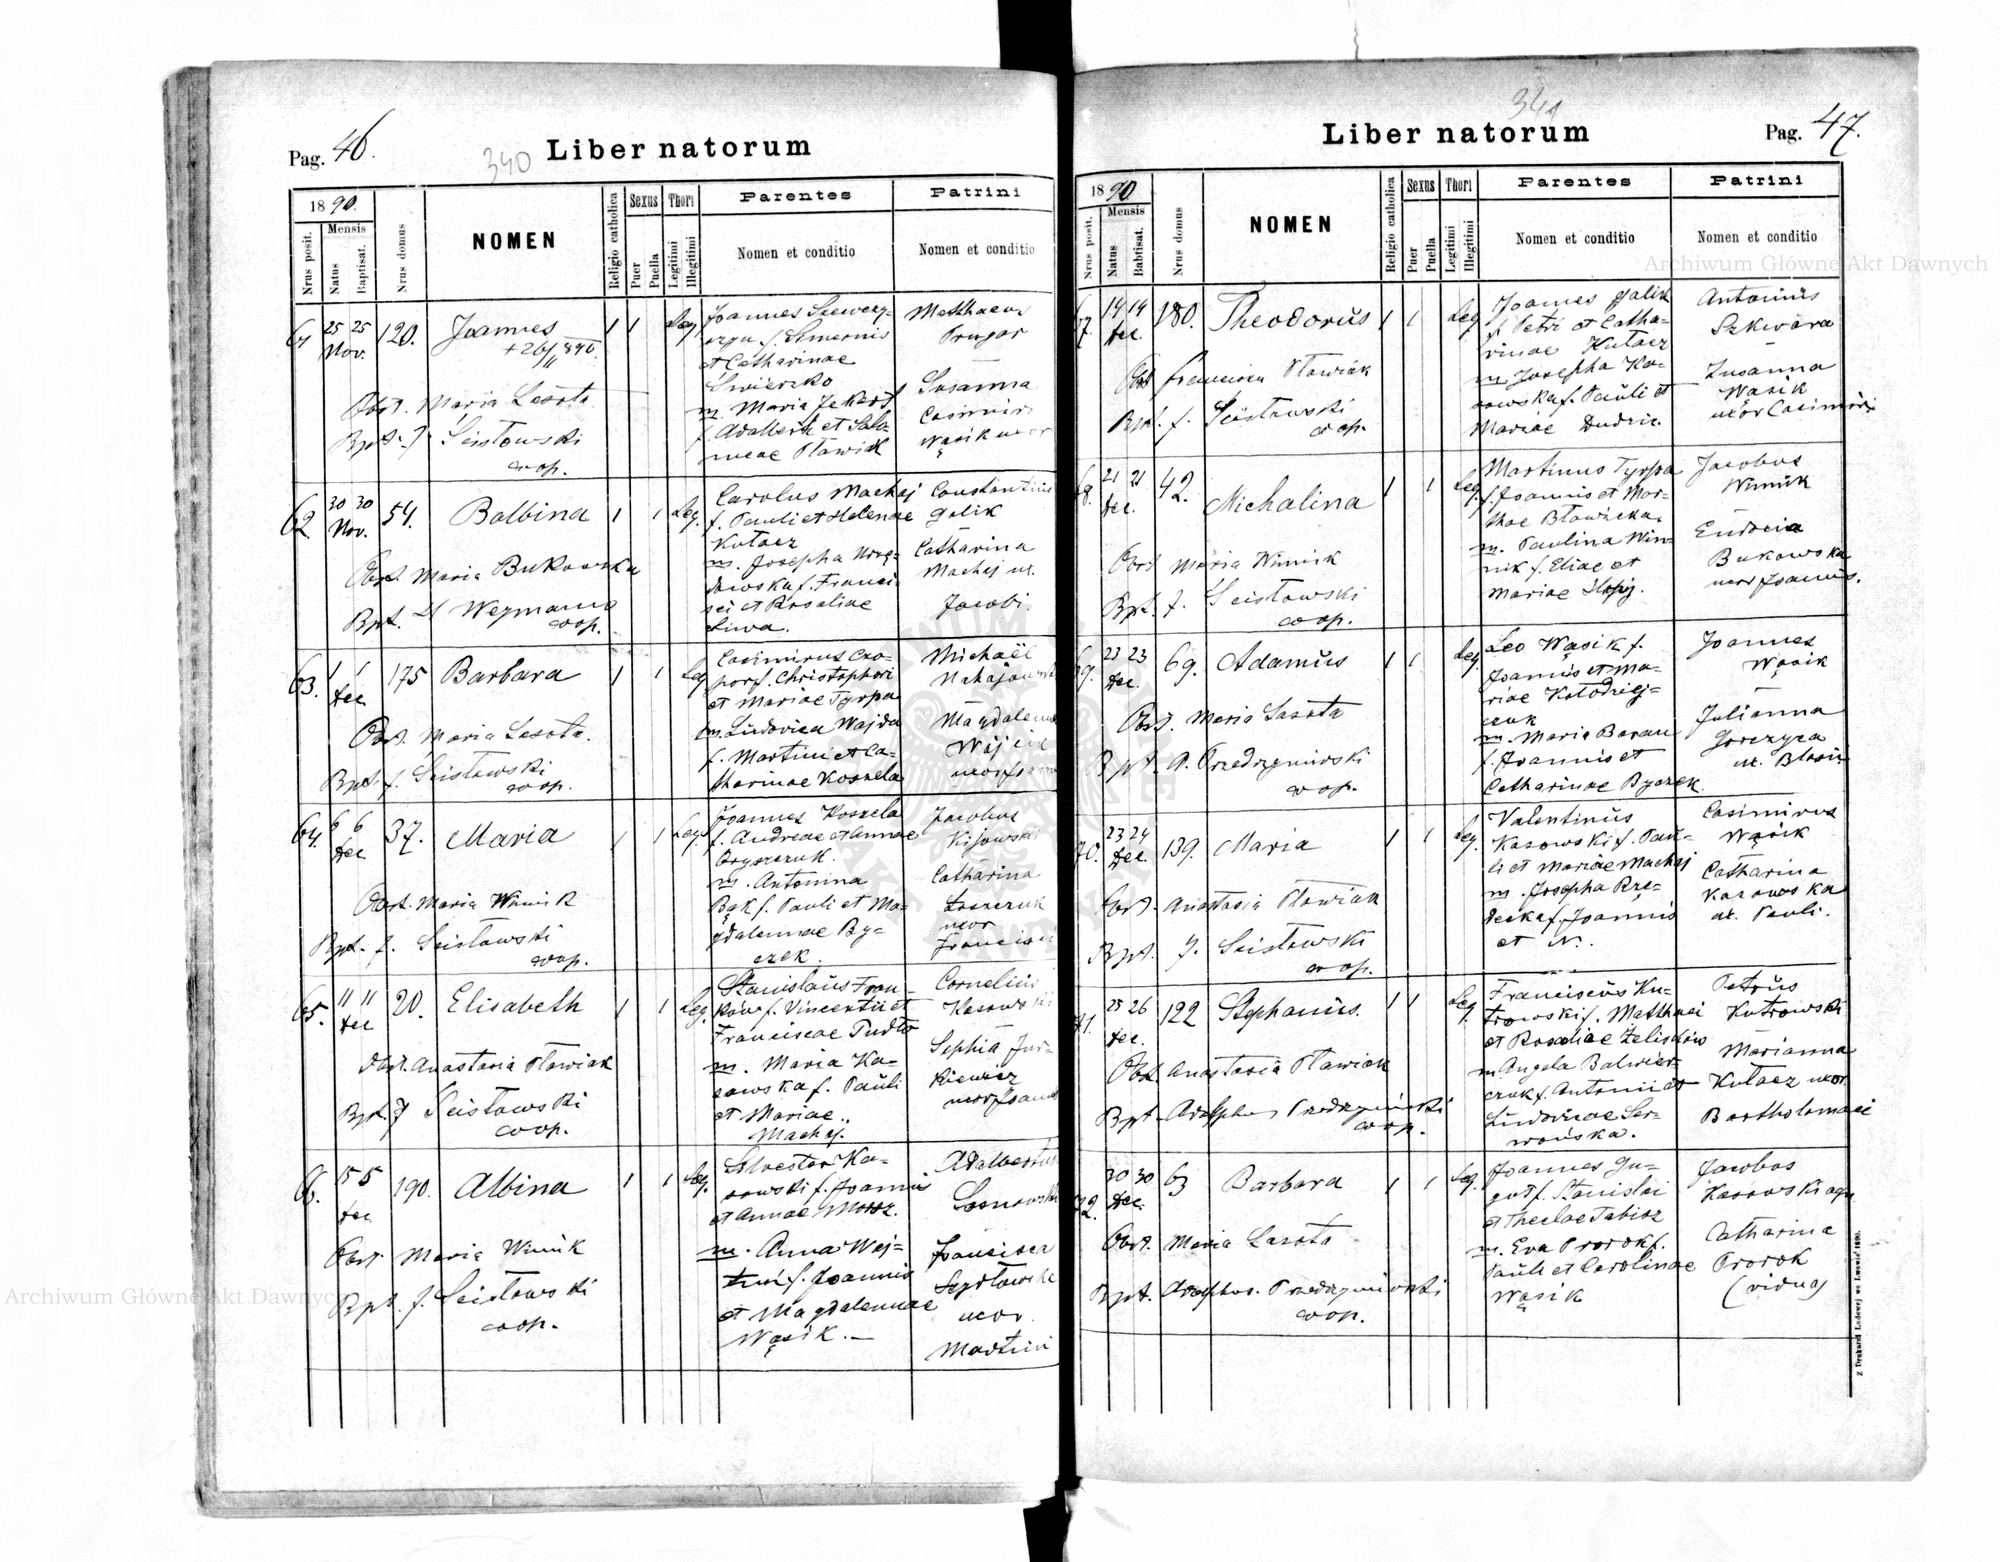 Pag. 46.
340
Liber natorum
1890.
Nrus posit.
Mensis
Natus
Baptisat.
Nrus domus
NOMEN
Religio catholica
Sexus
Puer
Puella
Thori
Legitimi
Illegitimi
Parentes
Nomen et conditio
Patrini
Nomen et conditio
61 25 25 Nov. 120. Joannes 1 1 Leg.
Obst. Maria Lasota
Bpt. J. Scisłowski
coop.
Joannes
et Catharinae
m. Maria
f. Adalberti et
Matthaeus
Susanna
Casimiri
Wąsik uxor
62 30 30 Nov. 54. Balbina 1 1 Leg.
Obst. Maria Bukowska
Bpt. Weymann
coop.
Carolus Machaj
f. Pauli et Helenae
Kutacz
m. Josepha
dowska f. Franci-
sci et Rosaliae
Siwa.
Constantius
Galik
Catharina
Machaj ux.
Jacobi.
63. 1 1 Dec 175 Barbara 1 1 Leg
Obst. Maria Lasota.
Bpt. J. Scisłowski
coop.
Casimirus Czo-
por f. Christophori
et Mariae Tyrpa
m. Ludovica Wajda
f. Martini et Ca-
tharinae Koszela
Michaël
Magdalena
Wójcik
uxor Joannis
64. 6 6 Dec 37. Maria 1 1 Leg.
Obst. Maria Winnik
Bpt. J. Scisłowski
coop.
Joannes Koszela
f. Andreae et Annae
m. Antonina
Bąk f. Pauli et Ma-
gdalennae By-
czek.
Jacobus
Kijowski
Catharina
uxor
Francisci
65. 11 11 Dec 20. Elisabeth 1 1 Leg.
Obst. Anastasia Pławiak
Bpt. J. Scisłowski
coop.
Stanislaus Fran-
ków f. Vincentii et
Franciscae Pudło
m. Maria Ka-
sowska f. Pauli
et Mariae
Machaj.
Cornelius
Kasowski
Sophia Jur-
kiewicz
uxor Joannis
66. 15 5 Dec 190. Albina 1 1 Leg.
Obst Maria Winnik
Bpt. J. Scisłowski
coop.
Silvester Ka-
sowski f. Joannis
et Annae
m. Anna Woj-
f. Joannis
et Magdalennae
Wąsik.—
Adalbertus
Sosnowski
Francisca
Szydłowska
uxor
Martini
341
Liber natorum
Pag. 47.
1890.
Nrus posit.
Mensis
Natus
Babtisat.
Nrus domus
NOMEN
Religio catholica
Sexus
Puer
Puella
Thori
Legitimi
Illegitimi
Parentes
Nomen et conditio
Patrini
Nomen et conditio
67. 14 14 Dec. 180. Theodorus 1 1 Leg
Obst Francisca Pławiak
Bpt. J. Scisłowski
coop.
Joannes Galik
f. Petri et Catha-
rinae Kutacz
m. Josepha Ka-
sowska f. Pauli et
Mariae
Antonius
Szkwara
Zusanna
Wąsik
uxor Casimiri
68. 21 21 Dec. 42. Michalina 1 1 Leg.
Obst Maria Winnik
Bpt. J. Scisłowski
coop.
Martinus Tyrpa
f. Joannis et Mar-
thae
m. Paulina Win-
nik f. Eliae et
Mariae
Jacobus
Winnik
Eudocia
Bukowska
uxor Joannis.
69. 23 23 Dec. 69. Adamus 1 1 Leg.
Obst. Maria Lasota
Bpt. A. Przedrzymirski
coop.
Leo Wąsik f.
Joannis et Ma-
riae Kołodziej-
czuk
m. Maria Baran
f. Joannis et
Catharinae Byczek.
Joannes
Wąsik
Julianna
Gorczyca
ux. Blasii
70. 23 24 Dec. 139. Maria 1 1 Leg.
Obst. Anastasia Pławiak
Bpt. J. Scisłowski
coop.
Valentinus
Kasowski f. Pau-
li et Mariae Machaj
m. Josepha Rze-
decka f. Joannis
et N.
Casimirus
Wąsik
Catharina
Kasowska
ux. Pauli.
71. 25 26 Dec. 122 Stephanus. 1 1 Leg.
Obst. Anastasia Pławiak
Bpt. Adolphus Przedrzymirski
coop.
Franciscus Ku-
trowski f. Matthaei
et Rosaliae Żelisków
m. Angela Balwier-
czuk f. Antonii et
Ludovicae Ser-
wańska.
Petrus
Kutrowski
Marianna
Kutacz uxor
Bartholomaei
72. 30 30 Dec. 63 Barbara 1 1 Leg.
Obst. Maria Lasota
Bpt. Adolphus. Przedrzymirski
coop.
Joannes Gu-
gut f. Stanislai
et Theclae Tabisz
m. Eva Prorok f.
Pauli et Carolinae
Wąsik
Jacobus
Kasowski agr.
Catharina
Prorok
(vidua)
Z Drukarni Ludowej we Lwowie 1890.
Archiwum Główne Akt Dawnych
Archiwum Główne Akt Dawnych